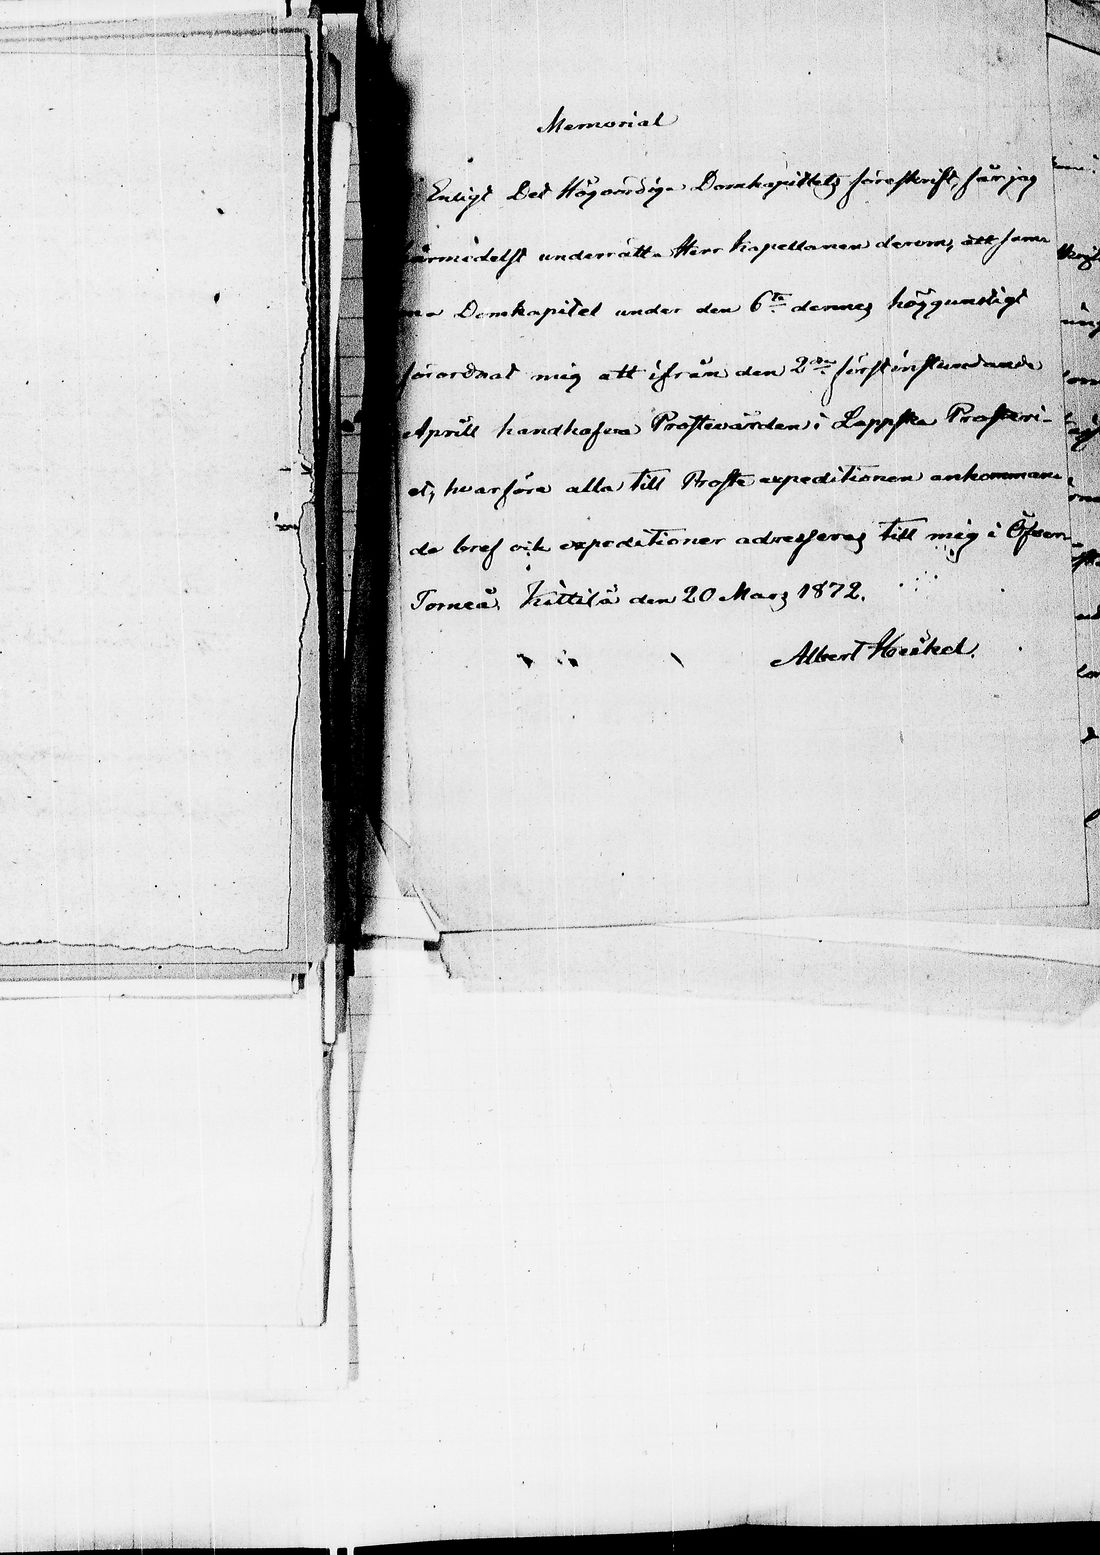 Memorial
Enligt Det Högvördiga Domkapitlets föreskrift, får jag
ärmedelst underrätta Herr Kapellanen derom, att sam-
ma Domkapitel under den 6te dennes höggunstigt
förordnat mig att ifrån den 2dra förstinstundande
April handhafva Prostevården i Lappska Prosteri-
et, hvarföre alla till Proste expeditionen ankomman-
de bref och expeditioner adresseras till mig i Öfver
Torneå. Kittilä den 20 Mars 1872.
Albert